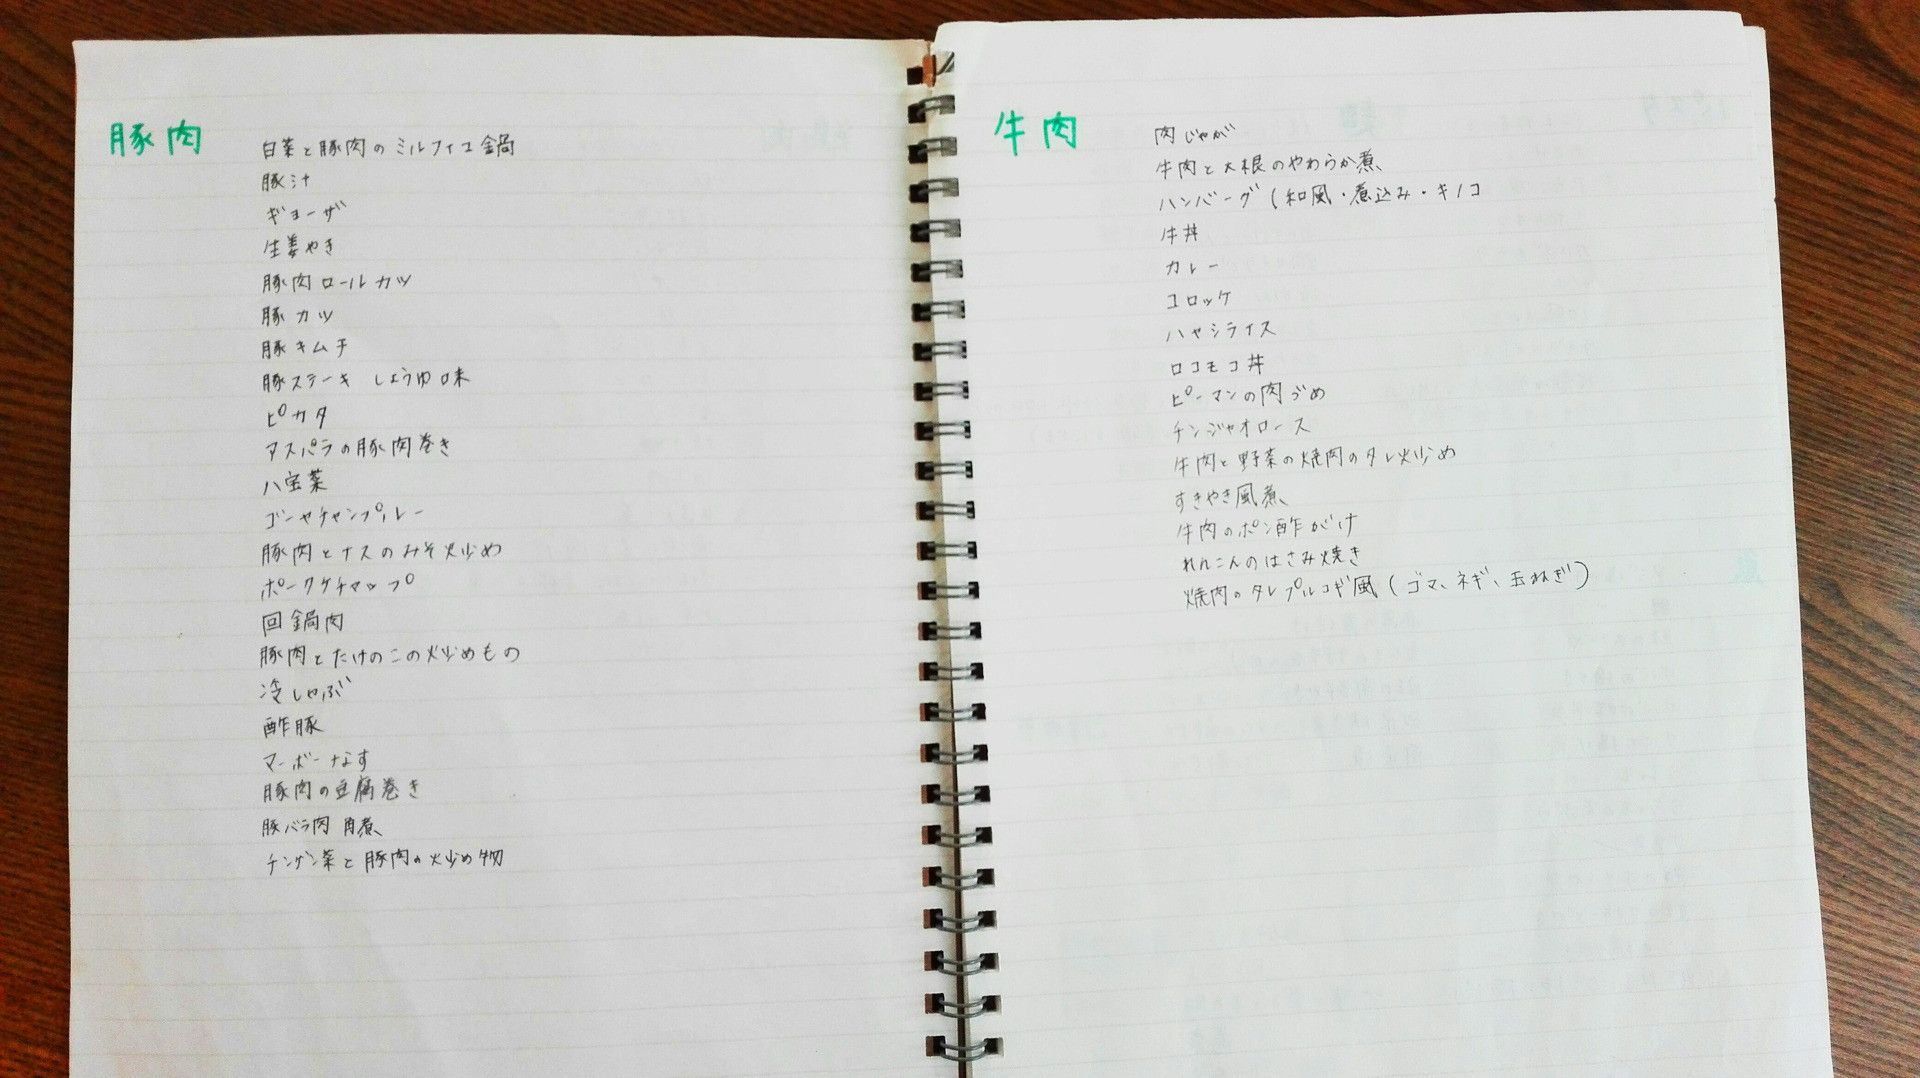 豚肉
白菜と豚肉のミルフィユ鍋
豚汁
ギョーザ
生姜やき
豚肉ロールカツ
豚カツ
豚キムチ
豚ステーキ しょうゆ味
ピカタ
アスパラの豚肉巻き
八宝菜
ゴーヤチャンプルー
豚肉とナスのみそ炒め
ポークケチャップ
回鍋肉
豚肉とたけのこの炒めもの
冷しゃぶ
酢豚
マーボーなす
豚肉の豆腐巻き
豚バラ肉 角煮
チンゲン菜と豚肉の炒め物
牛肉
肉じゃが
牛肉と大根のやわらか煮
ハンバーグ(和風・煮込み・キノコ
牛丼
カレー
コロッケ
ハヤシライス
ロコモコ丼
ピーマンの肉づめ
チンジャオロース
牛肉と野菜の焼肉のタレ炒め
すきやき風煮
牛肉のポン酢がけ
れんこんのはさみ焼き
焼肉のタレプルコギ風(ゴマ、ネギ、玉ねぎ)